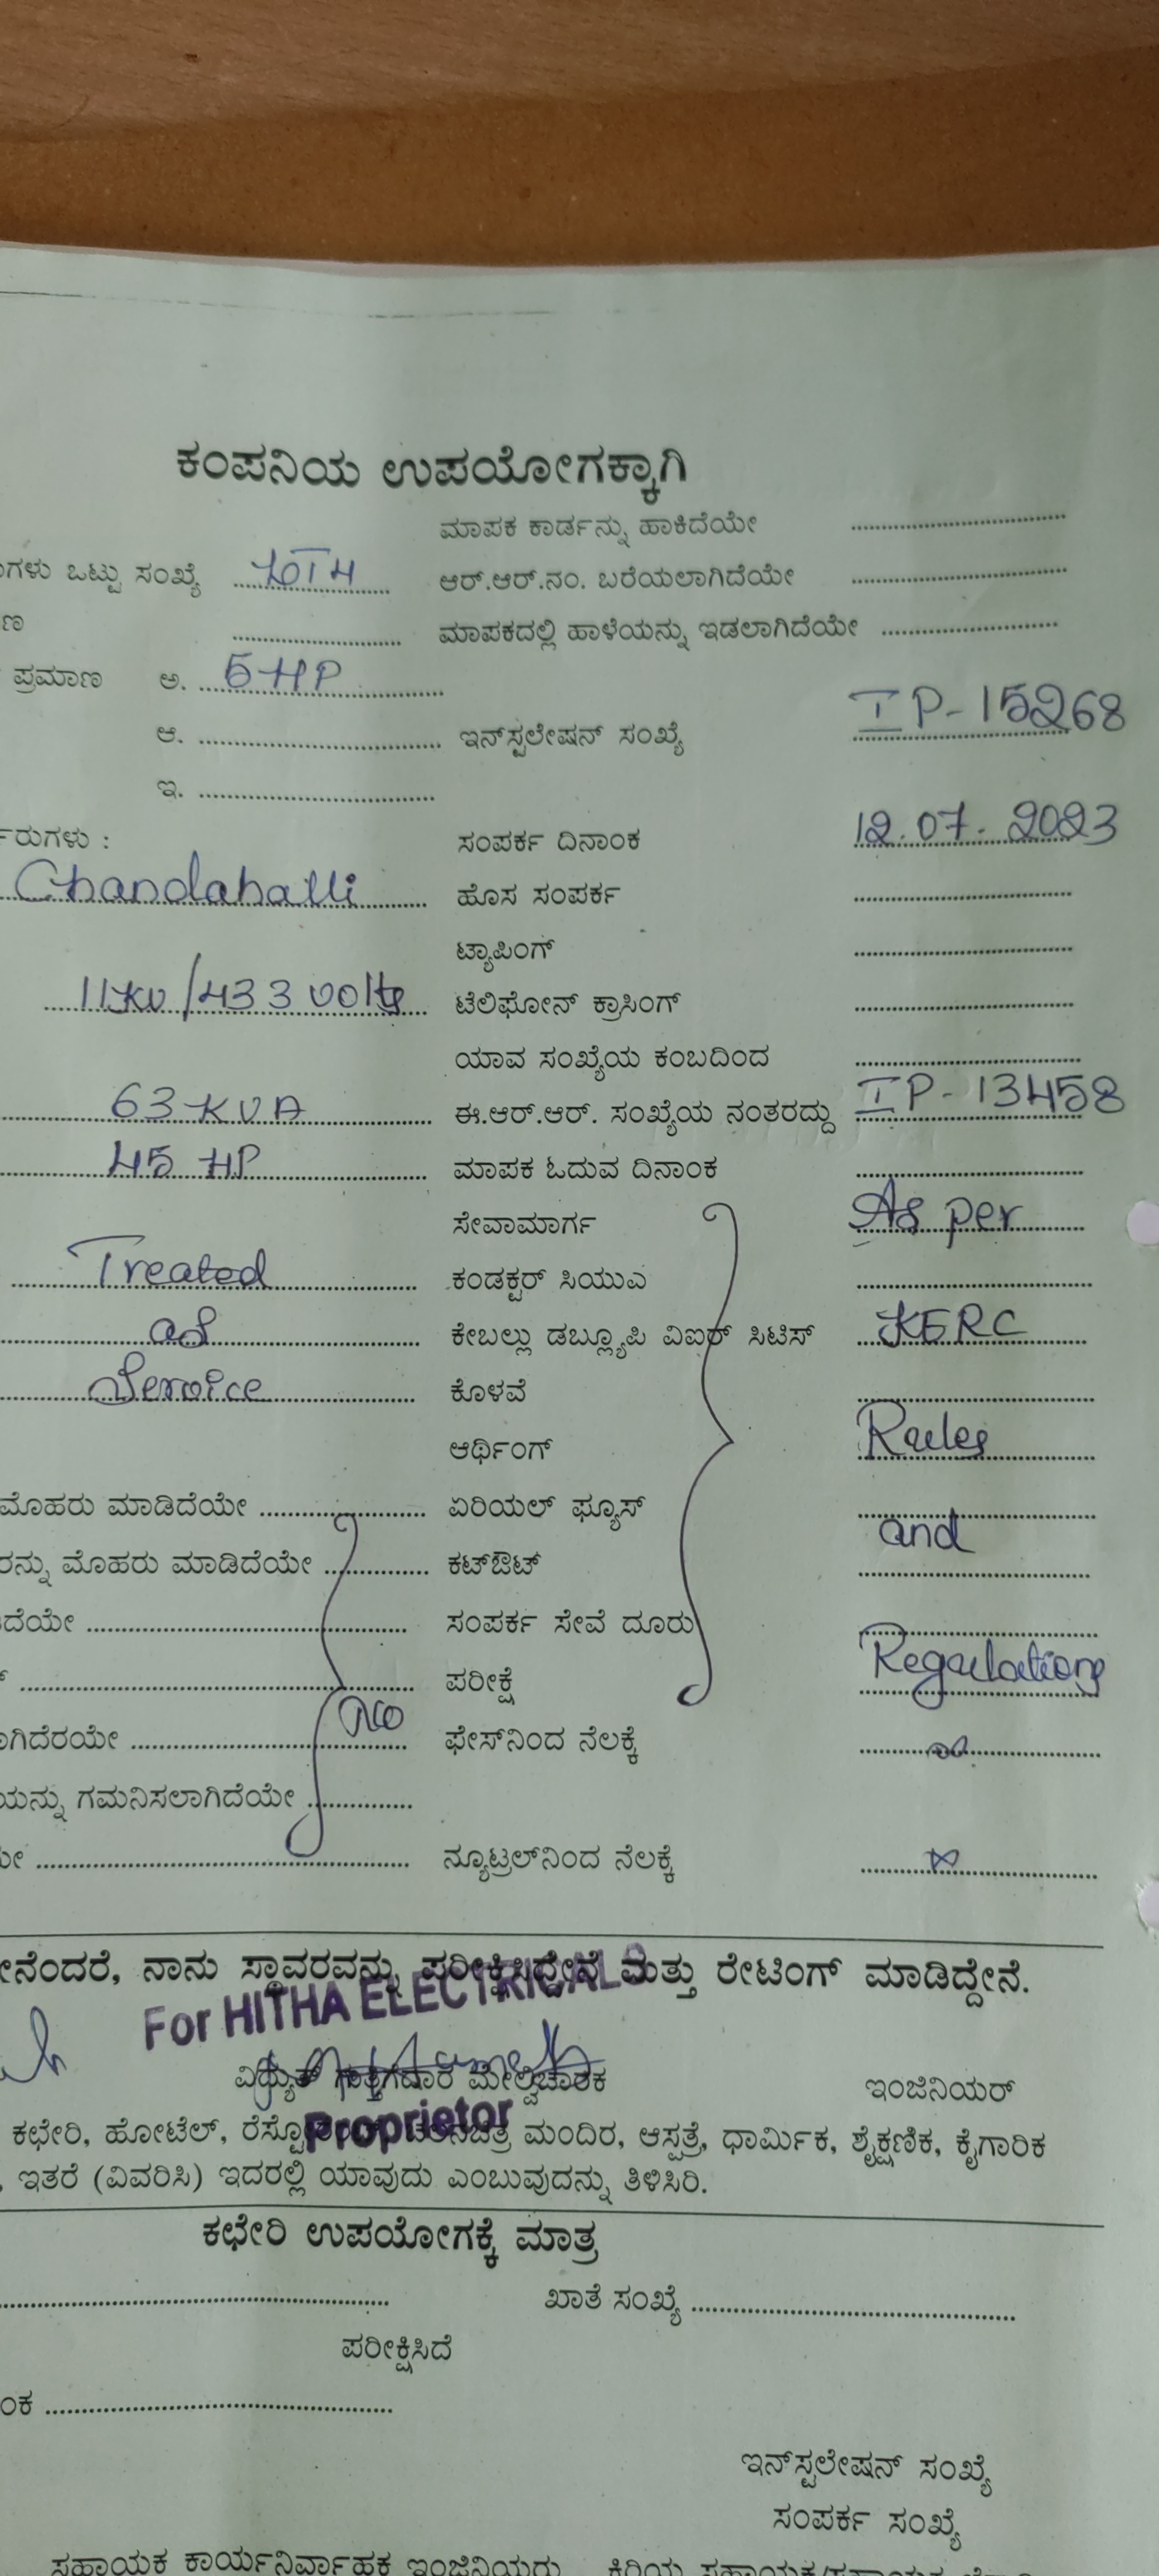 ಕಂಪನಿಯ ಉಪಯೋಗಕ್ಕಾಗಿ
ಮಾಪಕ ಕಾರ್ಡನ್ನು ಹಾಕಿದೆಯೇ ....................
ಗಳು ಒಟ್ಟು ಸಂಖ್ಯೆ .................... ಆರ್.ಆರ್.ನಂ. ಬರೆಯಲಾಗಿದೆಯೇ ....................
ಣ .................... ಮಾಪಕದಲ್ಲಿ ಹಾಳೆಯನ್ನು ಇಡಲಾಗಿದೆಯೇ ....................
ಪ್ರಮಾಣ ಅ. 5 HP
ಆ. .................... ಇನ್‌ಸ್ಟಲೇಷನ್ ಸಂಖ್ಯೆ IP-15268
ಇ. ....................
ರುಗಳು : ಸಂಪರ್ಕ ದಿನಾಂಕ 12.07.2023
Chandahalli ಹೊಸ ಸಂಪರ್ಕ ....................
ಟ್ಯಾಪಿಂಗ್ ....................
11KV/433 volts ಟೆಲಿಫೋನ್ ಕ್ರಾಸಿಂಗ್ ....................
ಯಾವ ಸಂಖ್ಯೆಯ ಕಂಬದಿಂದ ....................
63 KVA ಈ.ಆರ್.ಆರ್. ಸಂಖ್ಯೆಯ ನಂತರದ್ದು IP-13458
45 HP ಮಾಪಕ ಓದುವ ದಿನಾಂಕ ....................
ಸೇವಾಮಾರ್ಗ As per
Treated ಕಂಡಕ್ಟರ್ ಸಿಯುಎ ....................
as ಕೇಬಲ್ಲು ಡಬ್ಲ್ಯೂಪಿ ವಿಐಆರ್ ಸಿಟಿಸ್ KERC
Service ಕೊಳವೆ ....................
ಆರ್ಥಿಂಗ್ Rules
ಮೊಹರು ಮಾಡಿದೆಯೇ .................... ಏರಿಯಲ್ ಫ್ಯೂಸ್ ....................
ರನ್ನು ಮೊಹರು ಮಾಡಿದೆಯೇ .................... ಕಟ್‌ಔಟ್ and
ದೆಯೇ .................... ಸಂಪರ್ಕ ಸೇವೆ ದೂರು ....................
.................... ಪರೀಕ್ಷೆ Regulations
ಾಗಿದೆರಯೇ .................... No ಫೇಸ್‌ನಿಂದ ನೆಲಕ್ಕೆ ....................
ಯನ್ನು ಗಮನಿಸಲಾಗಿದೆಯೇ ....................
ಯೇ .................... ನ್ಯೂಟ್ರಲ್‌ನಿಂದ ನೆಲಕ್ಕೆ ....................
ನೆಂದರೆ, ನಾನು ಸ್ಥಾವರವನ್ನು ಪರೀಕ್ಷಿಸಿದ್ದೇನೆ ಮತ್ತು ರೇಟಿಂಗ್ ಮಾಡಿದ್ದೇನೆ.
For HITHA ELECTRICALS
ವಿದ್ಯುತ್ ಗುತ್ತಿಗೆದಾರ ಮೇಲ್ವಿಚಾರಕ ಇಂಜಿನಿಯರ್
Proprietor
ಕಛೇರಿ, ಹೋಟೆಲ್, ಮಂದಿರ, ಆಸ್ಪತ್ರೆ, ಧಾರ್ಮಿಕ, ಶೈಕ್ಷಣಿಕ, ಕೈಗಾರಿಕ
, ಇತರೆ (ವಿವರಿಸಿ) ಇದರಲ್ಲಿ ಯಾವುದು ಎಂಬುವುದನ್ನು ತಿಳಿಸಿರಿ.
ಕಛೇರಿ ಉಪಯೋಗಕ್ಕೆ ಮಾತ್ರ
.................... ಖಾತೆ ಸಂಖ್ಯೆ ....................
ಪರೀಕ್ಷಿಸಿದೆ
ಂಕ ....................
ಇನ್‌ಸ್ಟಲೇಷನ್ ಸಂಖ್ಯೆ
ಸಂಪರ್ಕ ಸಂಖ್ಯೆ
ಸಹಾಯಕ ಕಾರ್ಯನಿರ್ವಾಹಕ ಇಂಜಿನಿಯರು ಕಿರಿಯ